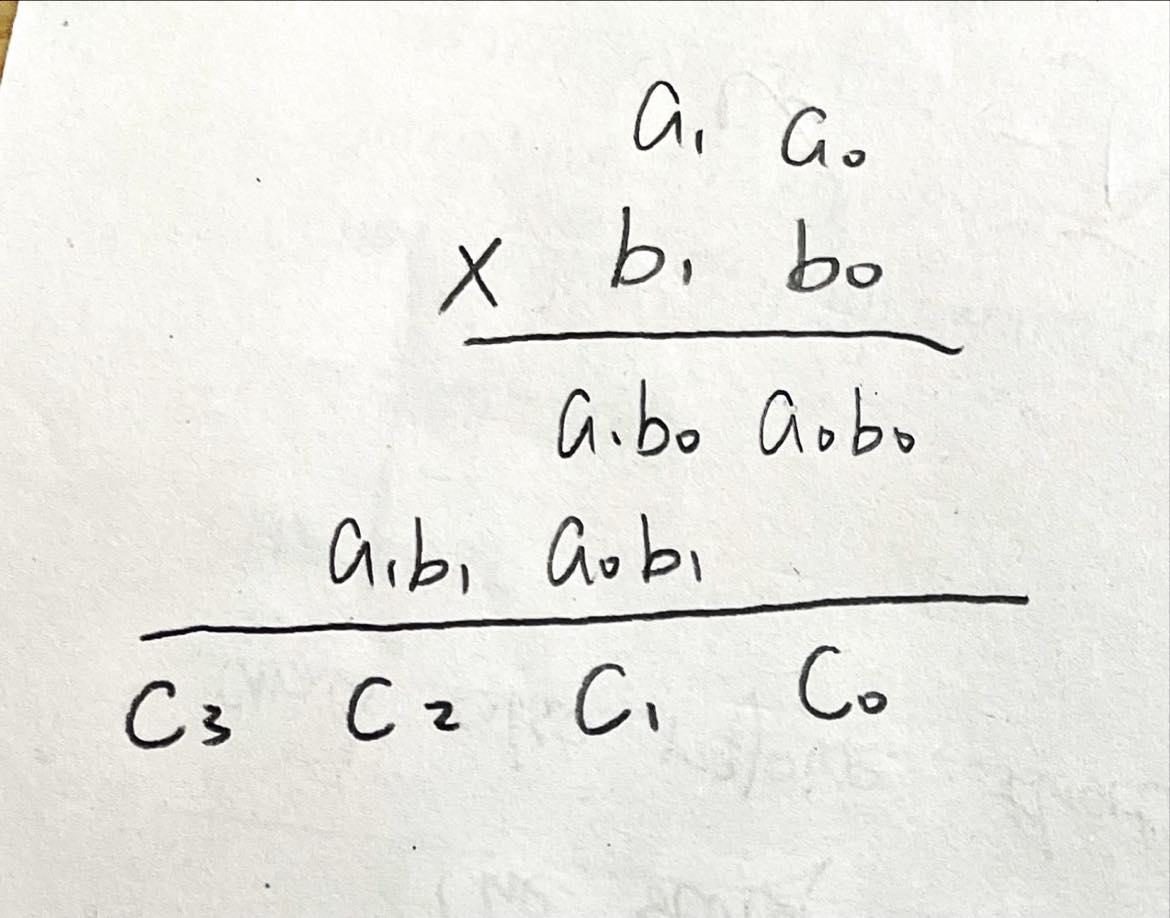 a₁ a₀
× b₁ b₀
a₁b₀ a₀b₀
a₁b₁ a₀b₁
C₃ C₂ C₁ C₀